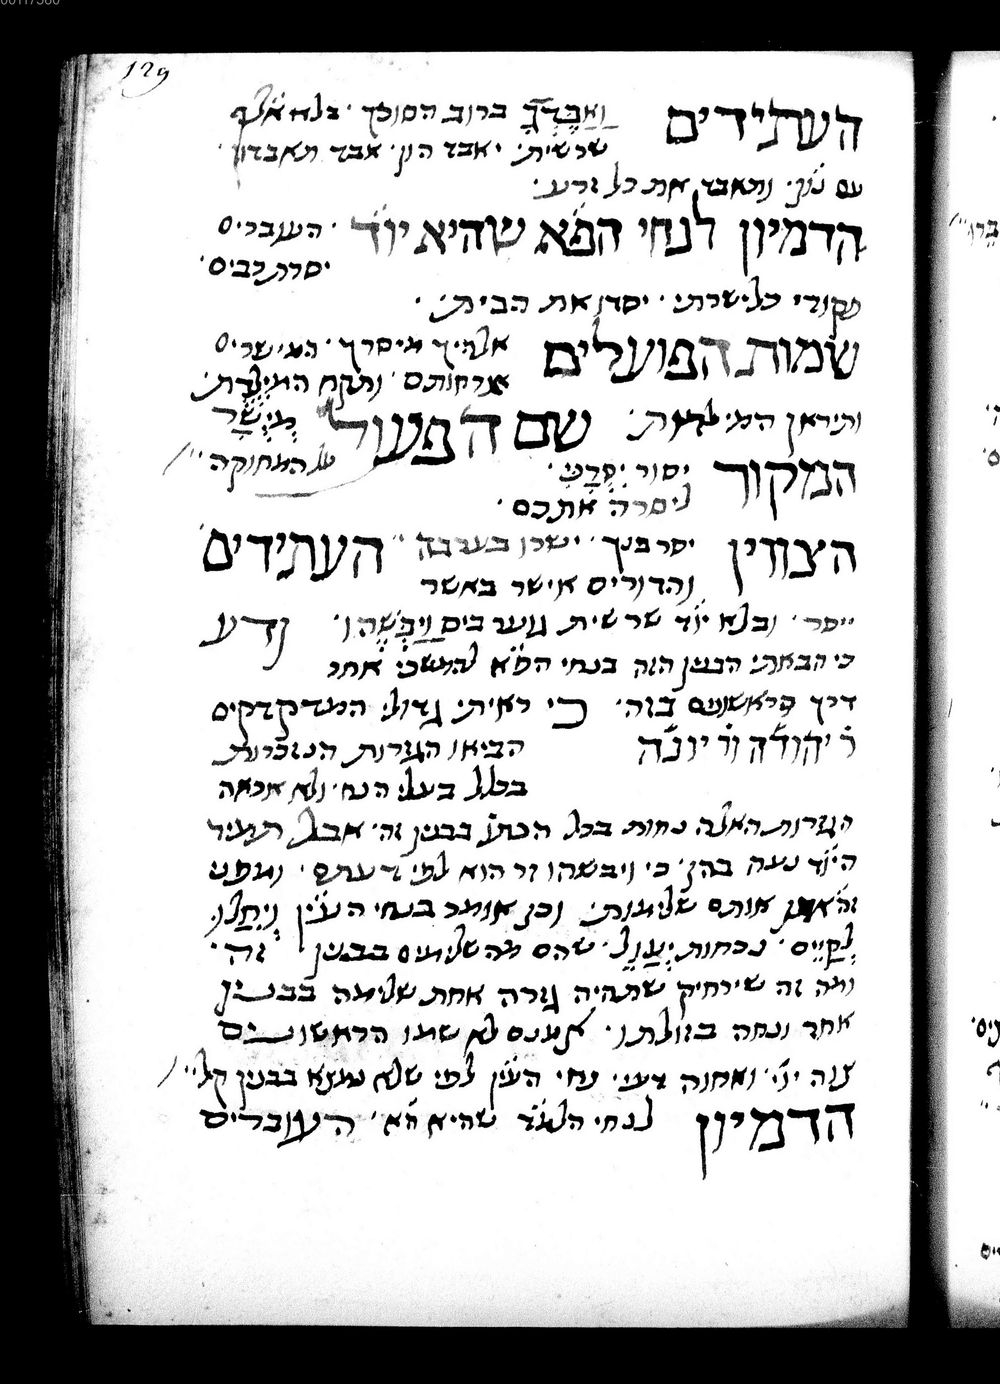 129
העתידים וַאַבֶּדְךָ ברוב הסוכך · בלא אלף
שרשית · יאבד הון · אבד תאבדון ·
עם נון · ותאבד את כל זרע ·
הדמיון לנחי הפא שהיא יוד · העוברים
יסרת רבים ·
מקורי כלישרתי · יסדו את הבית ·
שמות הפועלים אלהיך מיסרך · המישרים
אורחותם · ותקח המיֶלֶדֶת ·
ותיראן המילדות · שם הפעול מְיֻשָּׁר
על המחוקה
המקור יסור יִסְרַנִי ·
ליסרה אתכם ·
הצווין יסר בנך · ישרו בערבה · העתידים
והדורים אישר באשר
ייסר · ובלא יוד שרשית גוער בים וַיַבְּשֵׁהוּ · ודע
כי הבאתי הבנין הזה בנחי הפא להמשכי אחר
דרך הראשונים בזה · כי ראיתי גדולי המדקדקים
ר יהודה ור יונה הביאו הגזרות הנזכרות
בכלל בעלי הנח · ולא אראה
הגזרות האלה נחות בכל הכתו בבנין זה · אבל תמיד
היוד נעה בהן · כי ויבשהו זר הוא לפי דעתם · ומפני
זה אותם שלימות · וכן אומר בנחי העין וְיַחֵלוּ
לְקַיֵּים · נכחות יְעַוֵּל · שהם מהשלימים בבנין זה ·
ומה זה שירחיק שתהיה גזרה אחת שלימה בבנין
אחד ונחה בזולתו · אמנם לא שמו הראשונים
ואחוה דעי נחי העין לפי שלא נמצא בבנין קל
הדמיון לנחי הלמד שהיא הא · העוברים